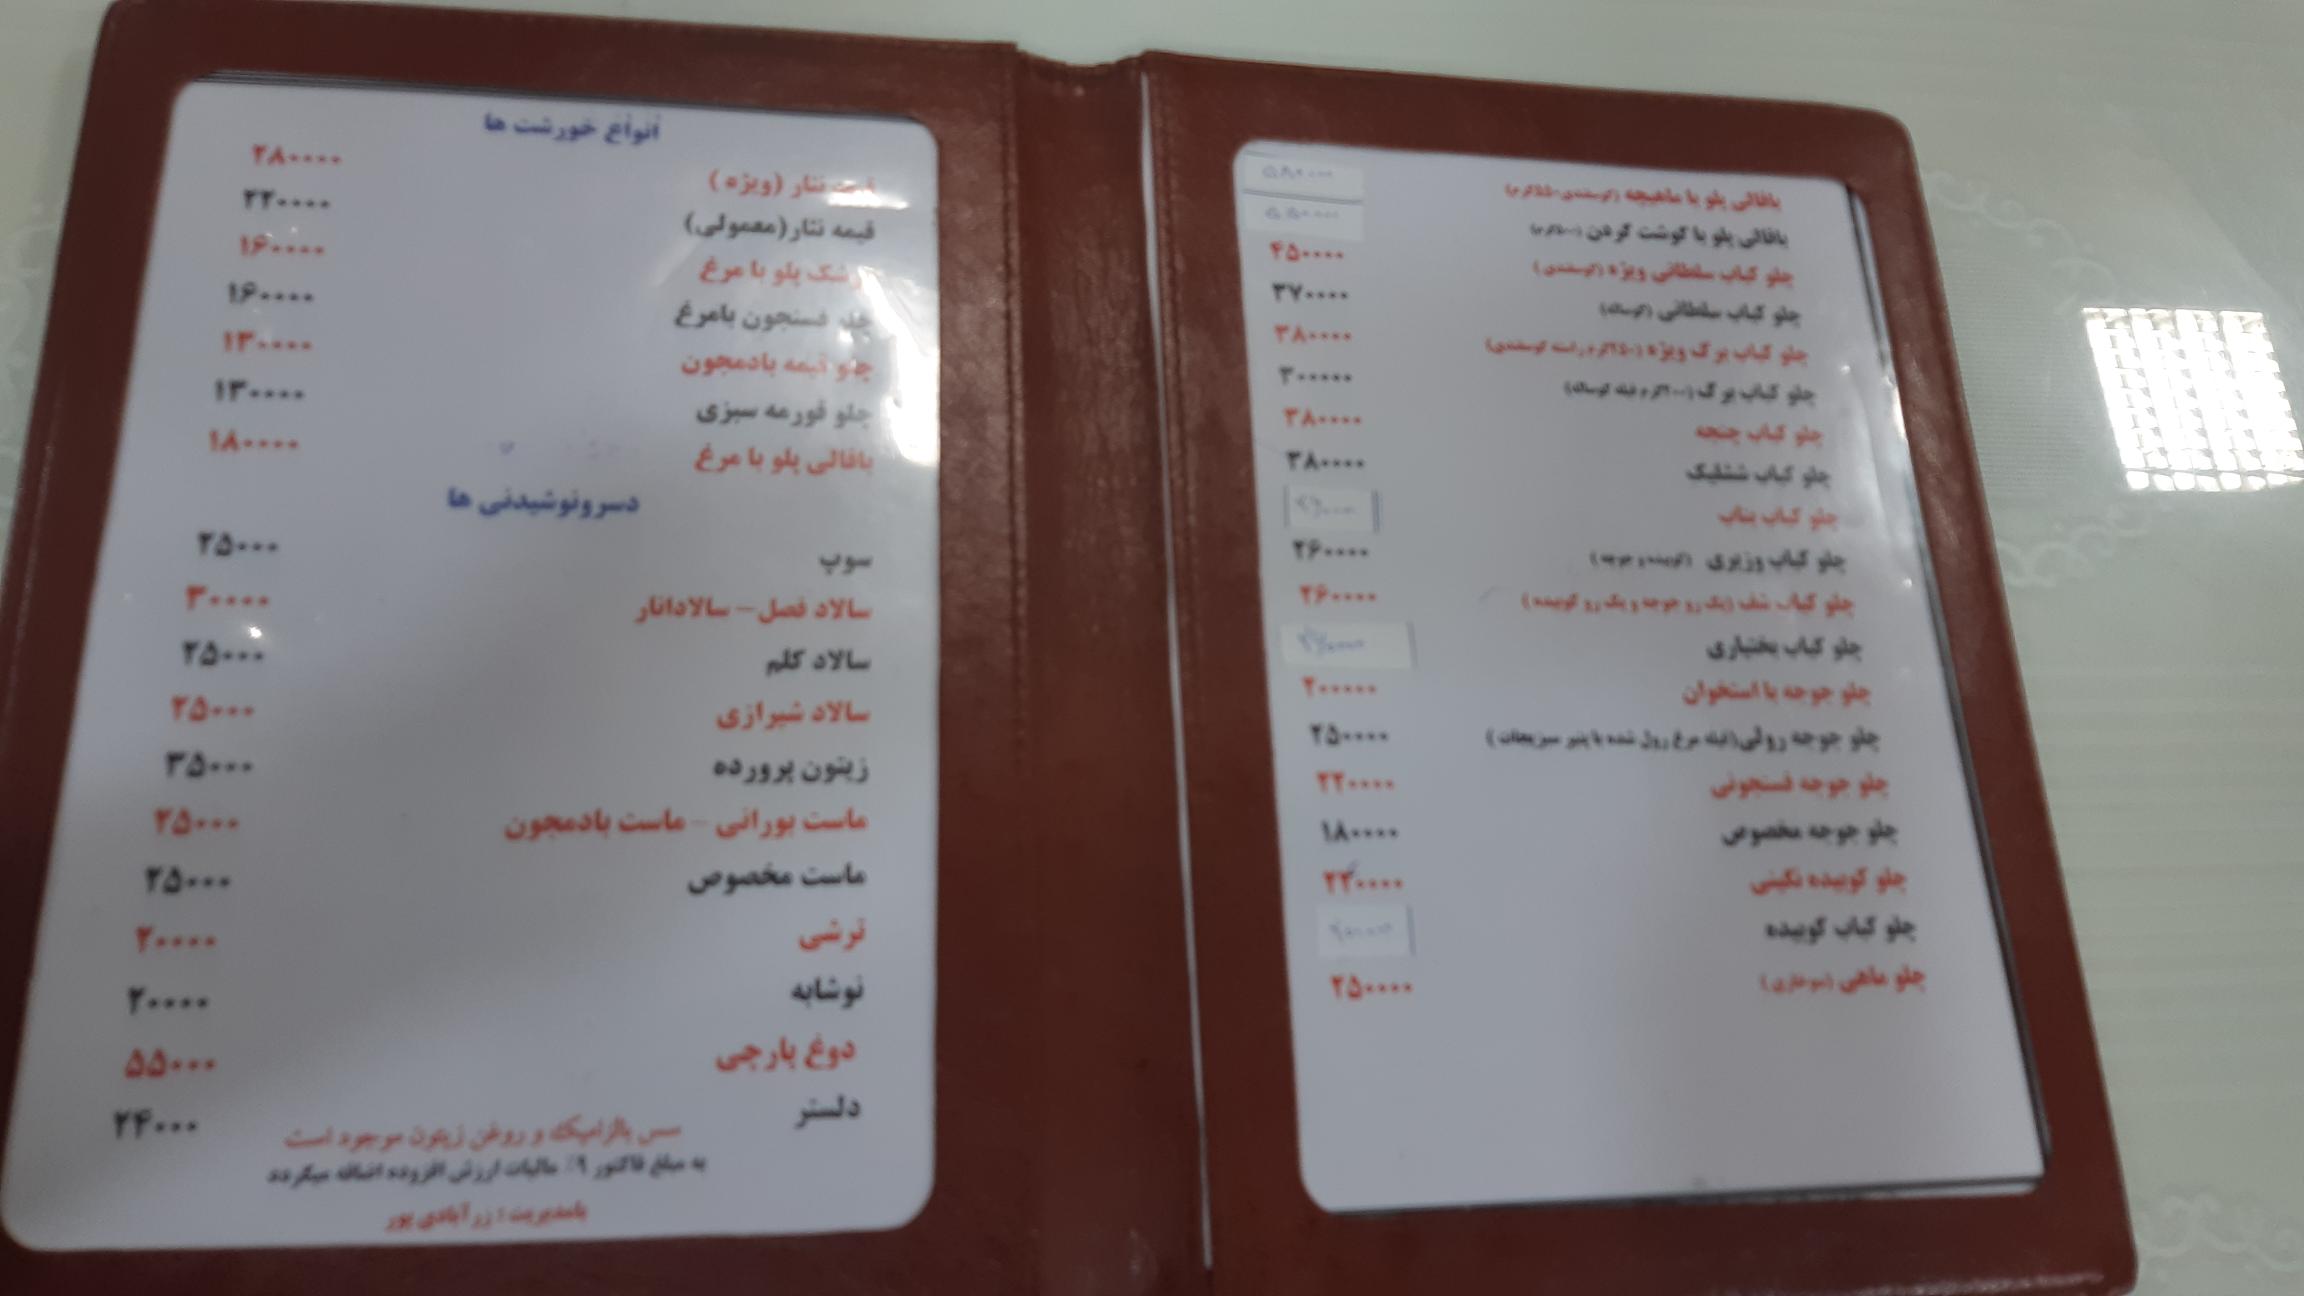 باقالی پلو با ماهیچه (گوسفندی ۵۵۰گرم) ۵۸۰۰۰۰
باقالی پلو با گوشت گردن (۵۰۰گرم) ۵۵۰۰۰۰
چلو کباب سلطانی ویژه (گوسفندی) ۴۵۰۰۰۰
چلو کباب سلطانی (گوساله) ۳۷۰۰۰۰
چلو کباب برگ ویژه (۲۵۰گرم راسته گوسفندی) ۳۸۰۰۰۰
چلو کباب برگ (۲۰۰گرم فیله گوساله) ۳۰۰۰۰۰
چلو کباب چنجه ۳۸۰۰۰۰
چلو کباب ششلیک ۳۸۰۰۰۰
چلو کباب بناب
چلو کباب وزیری (کوبیده و جوجه) ۲۶۰۰۰۰
چلو کباب شف (یک رو جوجه و یک رو کوبیده) ۲۶۰۰۰۰
چلو کباب بختیاری
چلو جوجه با استخوان ۲۰۰۰۰۰
چلو جوجه رولی (فیله مرغ رول شده با پنیر سبزیجات) ۲۵۰۰۰۰
چلو جوجه فسنجونی ۲۲۰۰۰۰
چلو جوجه مخصوص ۱۸۰۰۰۰
چلو کوبیده نگینی ۲۲۰۰۰۰
چلو کباب کوبیده
چلو ماهی (سوخاری) ۲۵۰۰۰۰
انواع خورشت ها
قیمه نثار (ویژه) ۲۸۰۰۰۰
قیمه نثار(معمولی) ۲۲۰۰۰۰
زرشک پلو با مرغ ۱۶۰۰۰۰
چلو فسنجون بامرغ ۱۶۰۰۰۰
چلو قیمه بادمجون ۱۳۰۰۰۰
چلو قورمه سبزی ۱۳۰۰۰۰
باقالی پلو با مرغ ۱۸۰۰۰۰
دسرونوشیدنی ها
سوپ ۲۵۰۰۰
سالاد فصل - سالادانار ۳۰۰۰۰
سالاد کلم ۲۵۰۰۰
سالاد شیرازی ۲۵۰۰۰
زیتون پرورده ۳۵۰۰۰
ماست بورانی - ماست بادمجون ۲۵۰۰۰
ماست مخصوص ۲۵۰۰۰
ترشی ۲۰۰۰۰
نوشابه ۲۰۰۰۰
دوغ پارچی ۵۵۰۰۰
دلستر ۲۴۰۰۰
سس بالزامیک و روغن زیتون موجود است
به مبلغ فاکتور ۹٪ مالیات ارزش افزوده اضافه میگردد
بامدیریت : زرآبادی پور